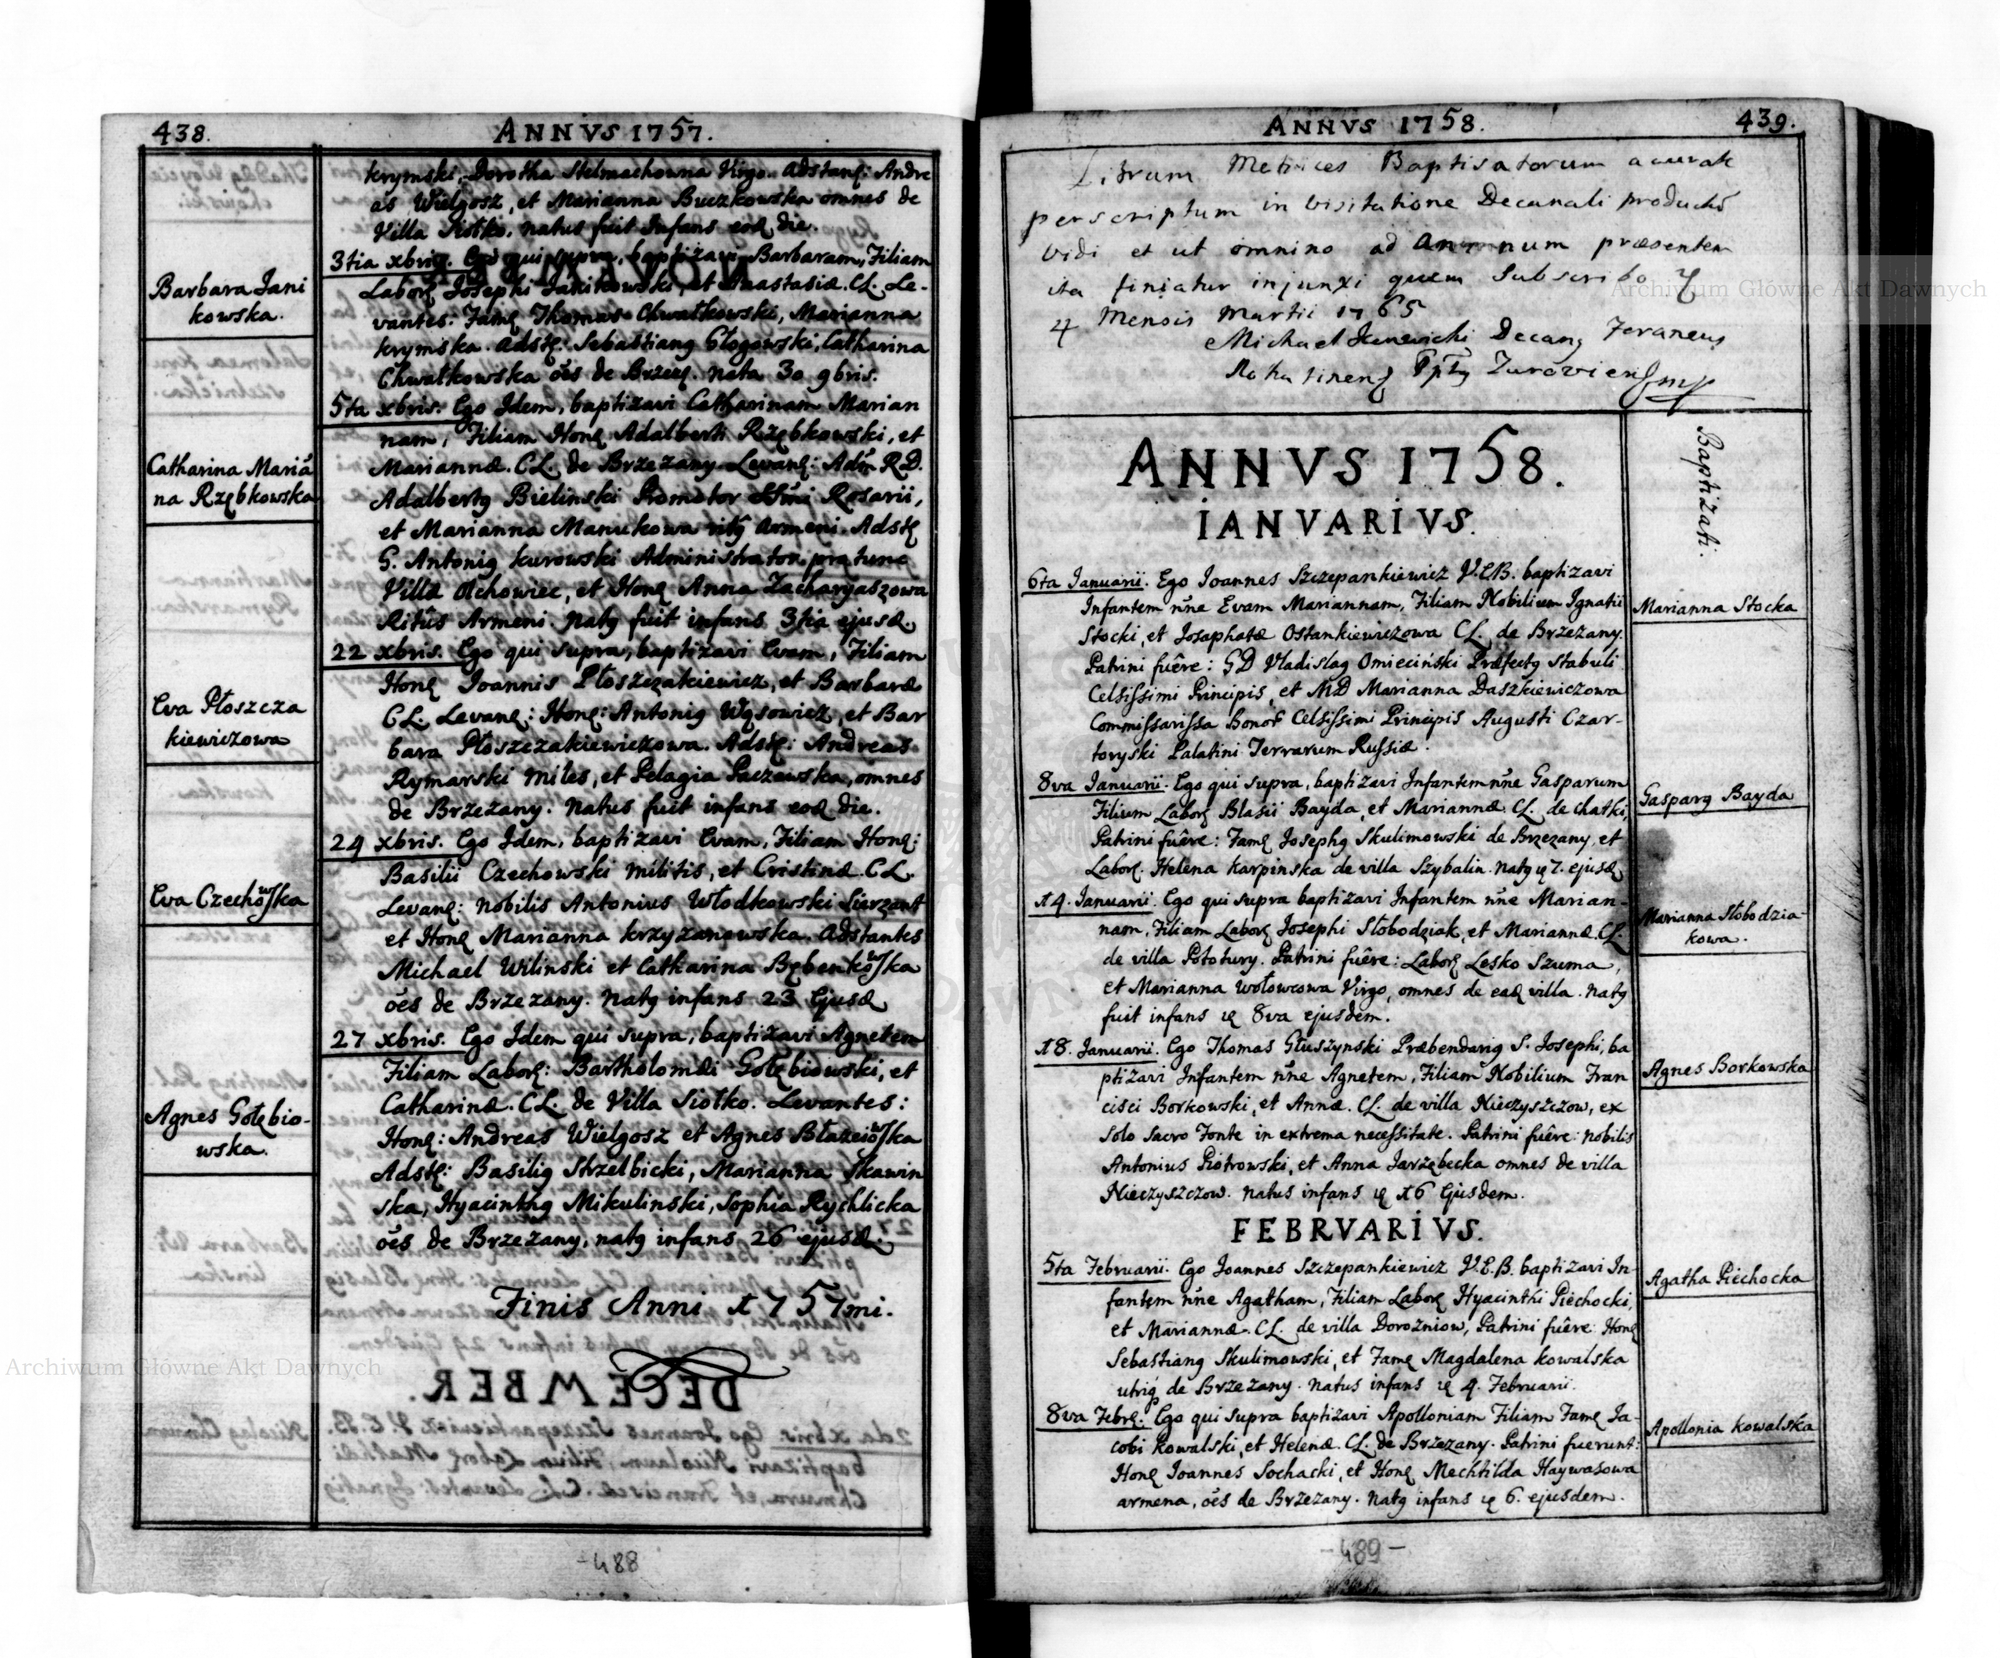 438.
ANNVS 1757.
krymski, Dorotha Stelmachowna Virgo. Adstanȩ: Andre
as Wielgosz, et Marianna Buczkowska omnes de
Villa Siołko. natus fuit Infans eoȡ die.
3tia xbris. Ego qui supra, baptizavi Barbaram, Filiam
Barbara Jani
kowska.
Laborȩ Josephi Janikowski, et Anastasiæ. CL. Le-
vantes: Famȩ Thomas Chwatkowski, Marianna
krymska. Adstȩ: Sebastianȩ Głogowski, Catharina
Chwatkowska ões de Brzeȩ. nata 30 9bris.
5ta xbris. Ego Idem, baptizavi Catharinam Marian
nam, Filiam Honȩ Adalberti Rząbkowski, et
Catharina Mariā
na Rząbkowska
Mariannæ. CL. de Brzezany Levanȩ: Adm̃ R.D.
Adalbertȩ Bielinski Promotor SSm̃i Rosarii,
et Marianna Manukowa ritȩ Armeni. Adstȩ
G. Antoniȩ kurowski Administrator pro tunc
Villæ Olchowiec, et Honȩ Anna Zacharyaszowa
Ritûs Armeni. Natȩ fuit infans 3tia ejusȡ.
22 xbris. Ego qui supra, baptizavi Evam, Filiam
Eva Płoszcza
kiewiczowa
Honȩ Joannis Płoszczakiewicz, et Barbaræ
CL. Levanȩ: Honȩ: Antoniȩ Wąsowicz, et Bar
bara Płoszczakiewiczowa. Adstȩ: Andreas
Rymarski miles, et Pelagia Paczewska, omnes
de Brzezany. Natus fuit infans eoȡ die.
24 xbris. Ego Idem, baptizavi Evam, Filiam Honȩ:
Eva Czechowska
Basilii Czechowski militis, et Cristinæ. CL.
Levanȩ: Nobilis Antonius Włodkowski Sierzant
et Honȩ Marianna krzyzanowska. Adstantes
Michael Wilinski et Catharina Bębenkowska
ões de Brzezany. Natȩ infans 23 Ejusȡ.
27 xbris. Ego Idem qui supra, baptizavi Agnetem
Agnes Gołębio-
wska.
Filiam Laborȩ: Bartholomæi Gołębiowski, et
Catharinæ. CL. de Villa Siołko. Levantes:
Honȩ: Andreas Wielgosz et Agnes Błazeiowska
Adstȩ: Basiliȩ Strzelbicki, Marianna Skawin
ska, Hyacinthȩ Mikulinski, Sophia Rychlicka
ões de Brzezany, natȩ infans 26 ejusȡ.
Finis Anni 1757mi.
-488
439.
ANNVS 1758.
Librum Metrices Baptisatorum accurate
perscriptum in visitatione Decanali productū
vidi et ut omnino ad Annum præsentem
ita finiatur injunxi quem Subscribo
4 Mensis Martii 1765
Michael Decanȩ Foraneus
Rohatinenȩ Zurovien mp
ANNVS 1758.
IANVARIVS.
Baptizati.
6ta Januarii. Ego Joannes Szczepankiewicz V.E.B. baptizavi
Infantem nn̄e Evam Mariannam, Filiam Nobilium Ignatii
Marianna Stocka
Stocki, et Josaphatæ Ostankiewiczowa CL. de Brzezany.
Patrini fuêre: GD Vladislaȩ Omieciński Præfectȩ stabuli
Celsissimi Principis, et MD Marianna Daszkiewiczowa
Commissarissa Bonor̃ Celsissimi Principis Augusti Czar-
toryski Palatini Terrarum Russiæ.
8va Januarii. Ego qui supra, baptizavi Infantem nn̄e Gasparum
Gasparȩ Bayda
Filium Laborȩ Blasii Bayda, et Mariannæ. CL. de Chatki,
Patrini fuêre: Famȩ Josephȩ Skulimowski de Brzezany, et
Laborȩ. Helena karpinska de villa Szybalin. Natȩ ȩ 7. ejusȡ
14. Januarii. Ego qui supra baptizavi Infantem nn̄e Marian-
Marianna Słobodzia-
kowa.
nam, Filiam Laborȩ Josephi Słobodziak, et Mariannæ. CL.
de villa Potutury. Patrini fuêre: Laborȩ Lesko Szuma,
et Marianna Wołowcowa Virgo, omnes de eaȡ villa. Natȩ
fuit infans ȩ 8va ejusdem.
18. Januarii. Ego Thomas Głuszynski Præbendariȩ S. Josephi, ba
ptizavi Infantem nn̄e Agnetem, Filiam Nobilium Fran
Agnes Borkowska
cisci Borkowski, et Annæ. CL. de villa Nieczyszczow, ex
Solo Sacro Fonte in extrema necessitate. Patrini fuêre: Nobilis
Antonius Piotrowski, et Anna Jarzębecka omnes de villa
Nieczyszczow. Natus infans ȩ 16 Ejusdem.
FEBRVARIVS.
5ta Februarii. Ego Joannes Szczepankiewicz V.E.B. baptizavi In-
Agatha Piechocka
fantem nn̄e Agatham, Filiam Laborȩ Hyacinthi Piechocki,
et Mariannæ. CL. de villa Dorozniow, Patrini fuêre: Honȩ
Sebastianȩ Skulimowski, et Famȩ Magdalena kowalska
utriqȩ de Brzezany. Natus infans ȩ 4. Februarii.
8va Febrȩ: Ego qui supra baptizavi Apolloniam Filiam Famȩ Ja-
Apollonia kowalska
cobi Kowalski, et Helenæ. CL. de Brzezany. Patrini fuerunt:
Honȩ Joannes Sochacki, et Honȩ Mechtilda Haywasowa
armena, ões de Brzezany. Natȩ infans ȩ 6. ejusdem.
-489-
Archiwum Główne Akt Dawnych
Archiwum Główne Akt Dawnych